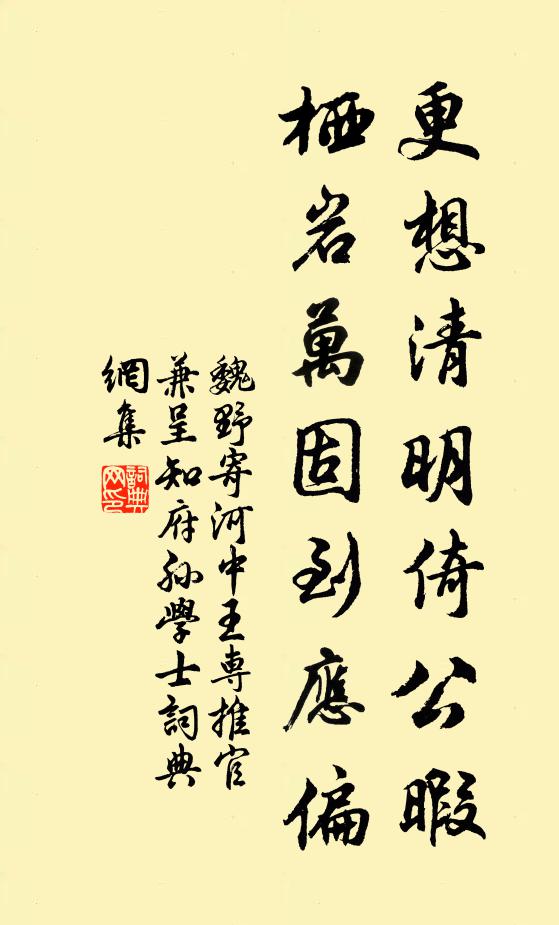 更想清明倚公暇
栖岩萬固到應偏
魏野寄河中王専推官
兼呈知府孙學士詞典
網集
詞典
网印